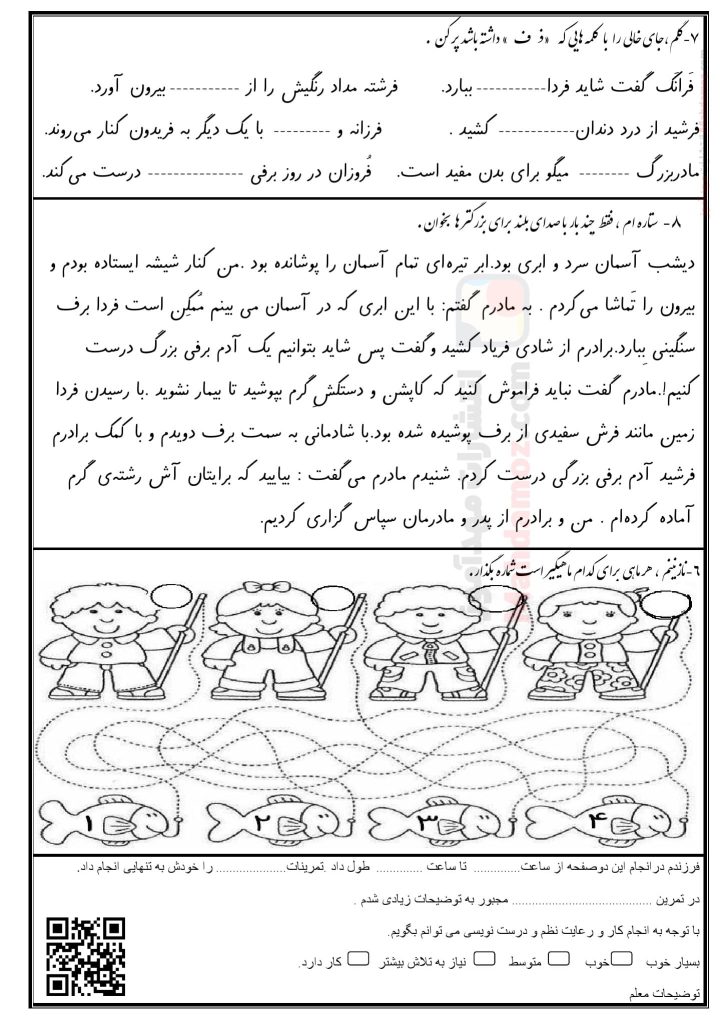 ۷-گلم ،جای خالی را با کلمه هایی که «ذ ف» داشته باشد پر کن .
فَرانَک گفت شاید فردا----------- ببارد. فرشته مداد رنگیش را از ----------- بیرون آورد.
فرشید از درد دندان------------ کشید . فرزانه و --------- با یک دیگر به فریدون کنار می‌روند.
مادربزرگ -------- میگو برای بدن مفید است. فُروزان در روز برفی --------------- درست می‌کند.
۸- ستاره ام ، فقط چند بار با صدای بلند برای بزرگترها بخوان .
دیشب آسمان سرد و ابری بود.ابر تیره‌ای تمام آسمان را پوشانده بود .من کنار شیشه ایستاده بودم و
بیرون را تَماشا می‌کردم . به مادرم گفتم: با این ابری که در آسمان می بینم مُمکِن است فردا برف
سنگینی بِبارد.برادرم از شادی فریاد کشید وگفت پس شاید بتوانیم یک آدم برفی بزرگ درست
کنیم!.مادرم گفت نباید فراموش کنید که کاپشن و دستکشِ گرم بپوشید تا بیمار نشوید .با رسیدن فردا
زمین مانند فرش سفیدی از برف پوشیده شده بود.با شادمانی به سمت برف دویدم و با کمک برادرم
فرشید آدم برفی بزرگی درست کردم. شنیدم مادرم می‌گفت : بیایید که برایتان آش رشته‌ی گرم
آماده کرده‌ام . من و برادرم از پدر و مادرمان سپاس گزاری کردیم.
۶-نازنینم ، هر ماهی برای کدام ماهیگیر است شماره بگذار.
۱ ۲ ۳ ۴
فرزندم درانجام این دوصفحه از ساعت.............. تا ساعت .............. طول داد .تمرینات..................... را خودش به تنهایی انجام داد.
در تمرین .......................................... مجبور به توضیحات زیادی شدم .
با توجه به انجام کار و رعایت نظم و درست نویسی می توانم بگویم.
بسیار خوب خوب متوسط نیاز به تلاش بیشتر کار دارد.
توضیحات معلم